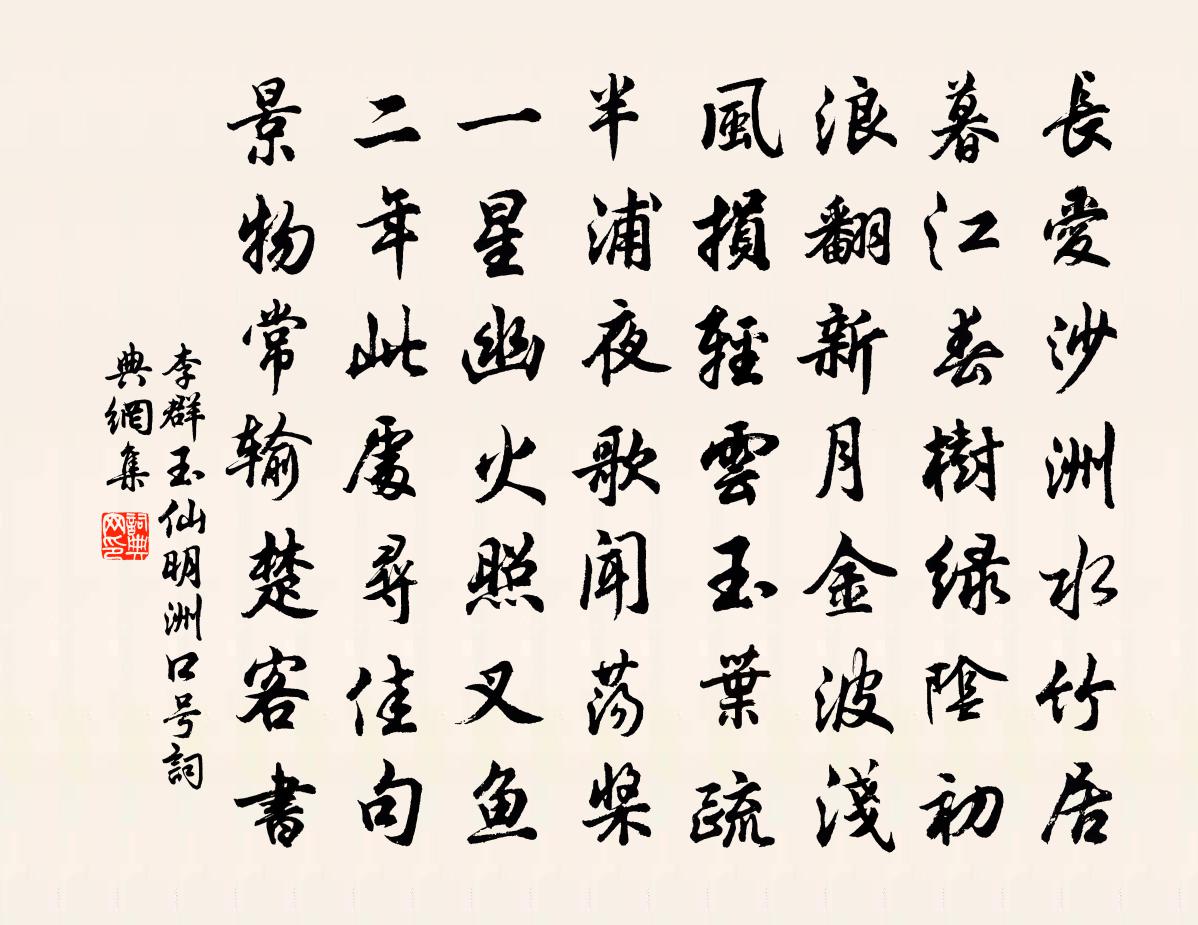 長愛沙洲水竹居
暮江春樹緑陰初
浪翻新月金波淺
風損輕雲玉葉疏
半浦夜歌聞蕩槳
一星幽火照叉鱼
二年此處尋佳句
景物常输楚客書
李群玉仙明洲口号詞
典網集
詞典
网印